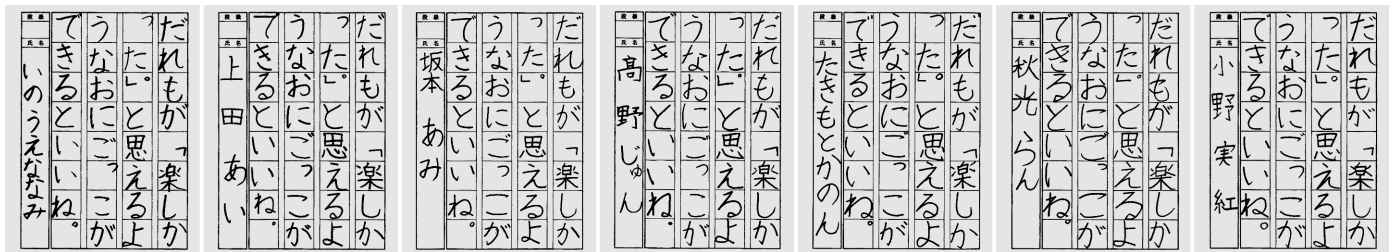 だれもが「楽しか
った。」と思えるよ
うなおにごっこが
できるといいね。
段級
氏名
いのうえななみ
だれもが「楽しか
った。」と思えるよ
うなおにごっこが
できるといいね。
段級
氏名
上田あい
だれもが「楽しか
った。」と思えるよ
うなおにごっこが
できるといいね。
段級
氏名
坂本あみ
だれもが「楽しか
った。」と思えるよ
うなおにごっこが
できるといいね。
段級
氏名
高野じゅん
だれもが「楽しか
った。」と思えるよ
うなおにごっこが
できるといいね。
段級
氏名
たきもとかのん
だれもが「楽しか
った。」と思えるよ
うなおにごっこが
できるといいね。
段級
氏名
秋光らん
だれもが「楽しか
った。」と思えるよ
うなおにごっこが
できるといいね。
段級
氏名
小野実紅